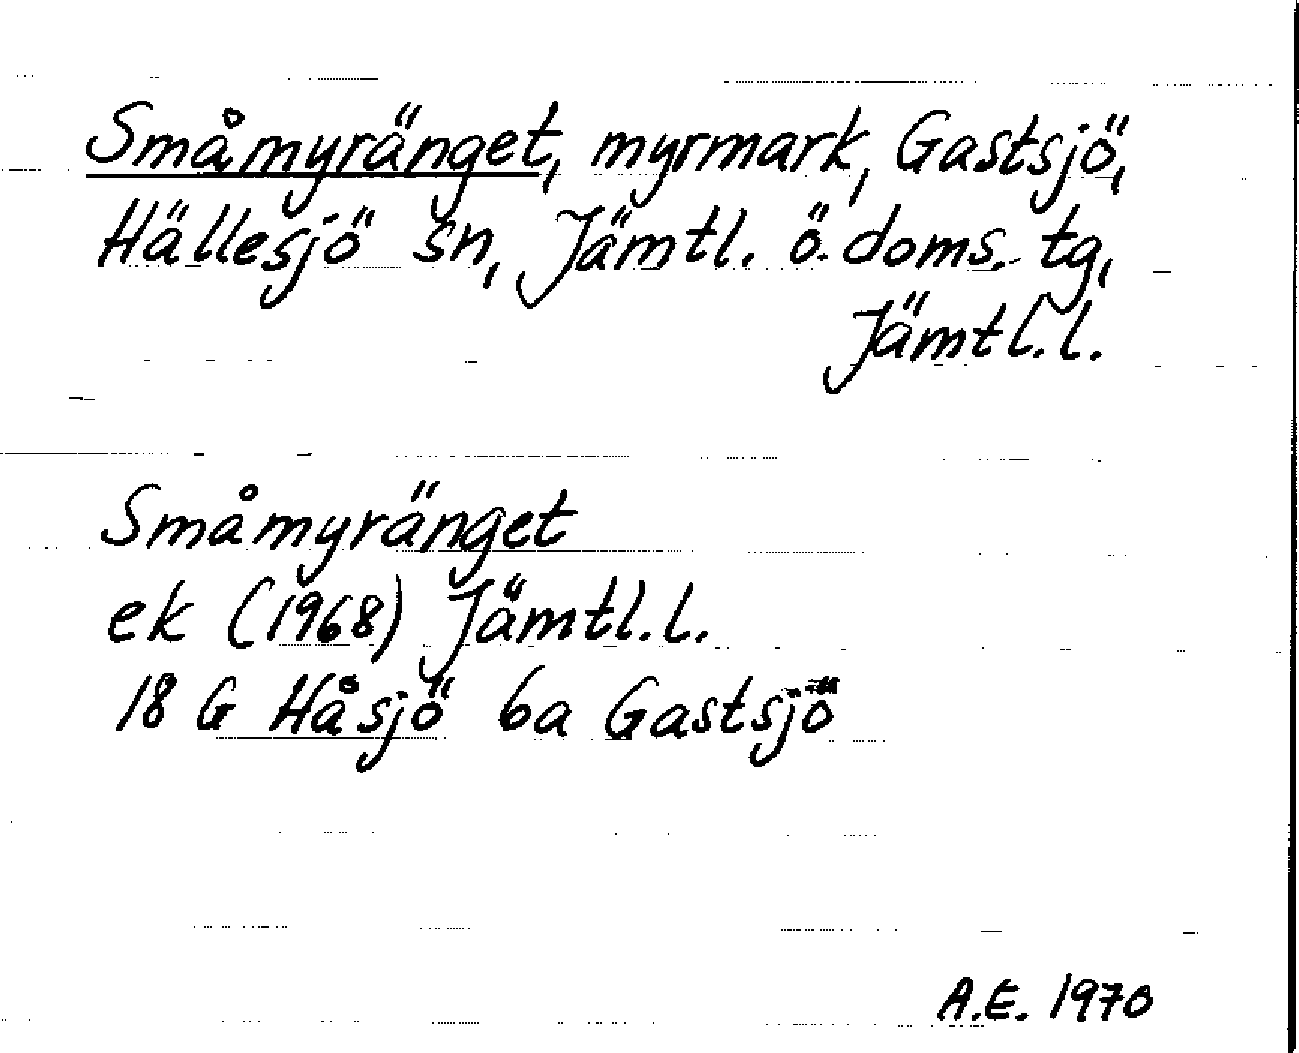 Småmyränget, myrmark, Gastsjö,
Hällesjö sn, Jämtl. ö. doms. tg,
Jämtl.l.
Småmyränget
ek (1968) Jämtl.l.
18 G Håsjö 6a Gastsjö
A.E. 1970